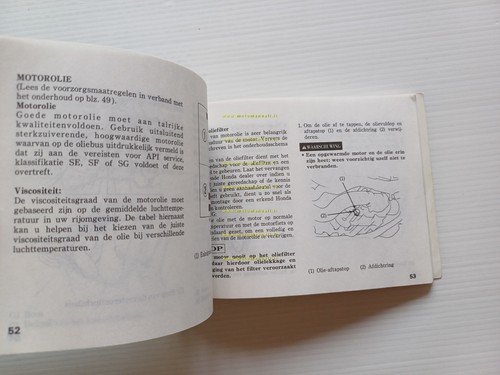 MOTOROLIE
(Lees de voorzorgsmaatregelen in verband met
het onderhoud op blz. 49).
Motorolie
Goede motorolie moet aan talrijke
kwaliteitenvoldoen. Gebruik uitsluitend
sterkzuiverende, hoogwaardige motorolie
waarvan op de oliebus uitdrukkelijk vermeld is
dat zij aan de vereisten voor API service,
klassifikatie SE, SF or SG voldoet of deze
overtreft.
Viscositeit:
De viscositeitsgraad van de motorolie moet
gebaseerd zijn op de gemiddelde luchttempe-
ratuur in uw rijomgeving. De tabel hiernaast
kan u helpen bij het kiezen van de juiste
viscositeitsgraad van de olie bij verschillende
luchttemperaturen.
52
www.motomanuals.it
oliefilter
van motorolie is zeer belangrijk
van de motor. Ververs de
in het onderhoudsschema
van de oliefilter dient met het
voor de oliefilter
te gebeuren. Laat het vervangen
Honda dealer over indien u
juiste gereedschap of de kennis
voor
gebruikt, dient u zo snel als
montage door een erkend Honda
te kontroleren.
de motor op normale
temperatuur en met de motorfiets op
gezet, om een volledig en
van de motorolie te verkrijgen.
www.motomanuals.it
OP
nooit op het oliefilter
hierdoor olielekkage en
van het filter veroorzaakt
worden.
1. Om de olie af te tappen, de olievuldop en
aftapstop (1) en de afdichtring (2) verwij-
deren.
WAARSCHUWING
• Een opgewarmde motor en de olie erin
zijn heet; wees voorzichtig uzelf niet te
verbranden.
(1)
(2)
(1) Olie-aftapstop (2) Afdichtring
53